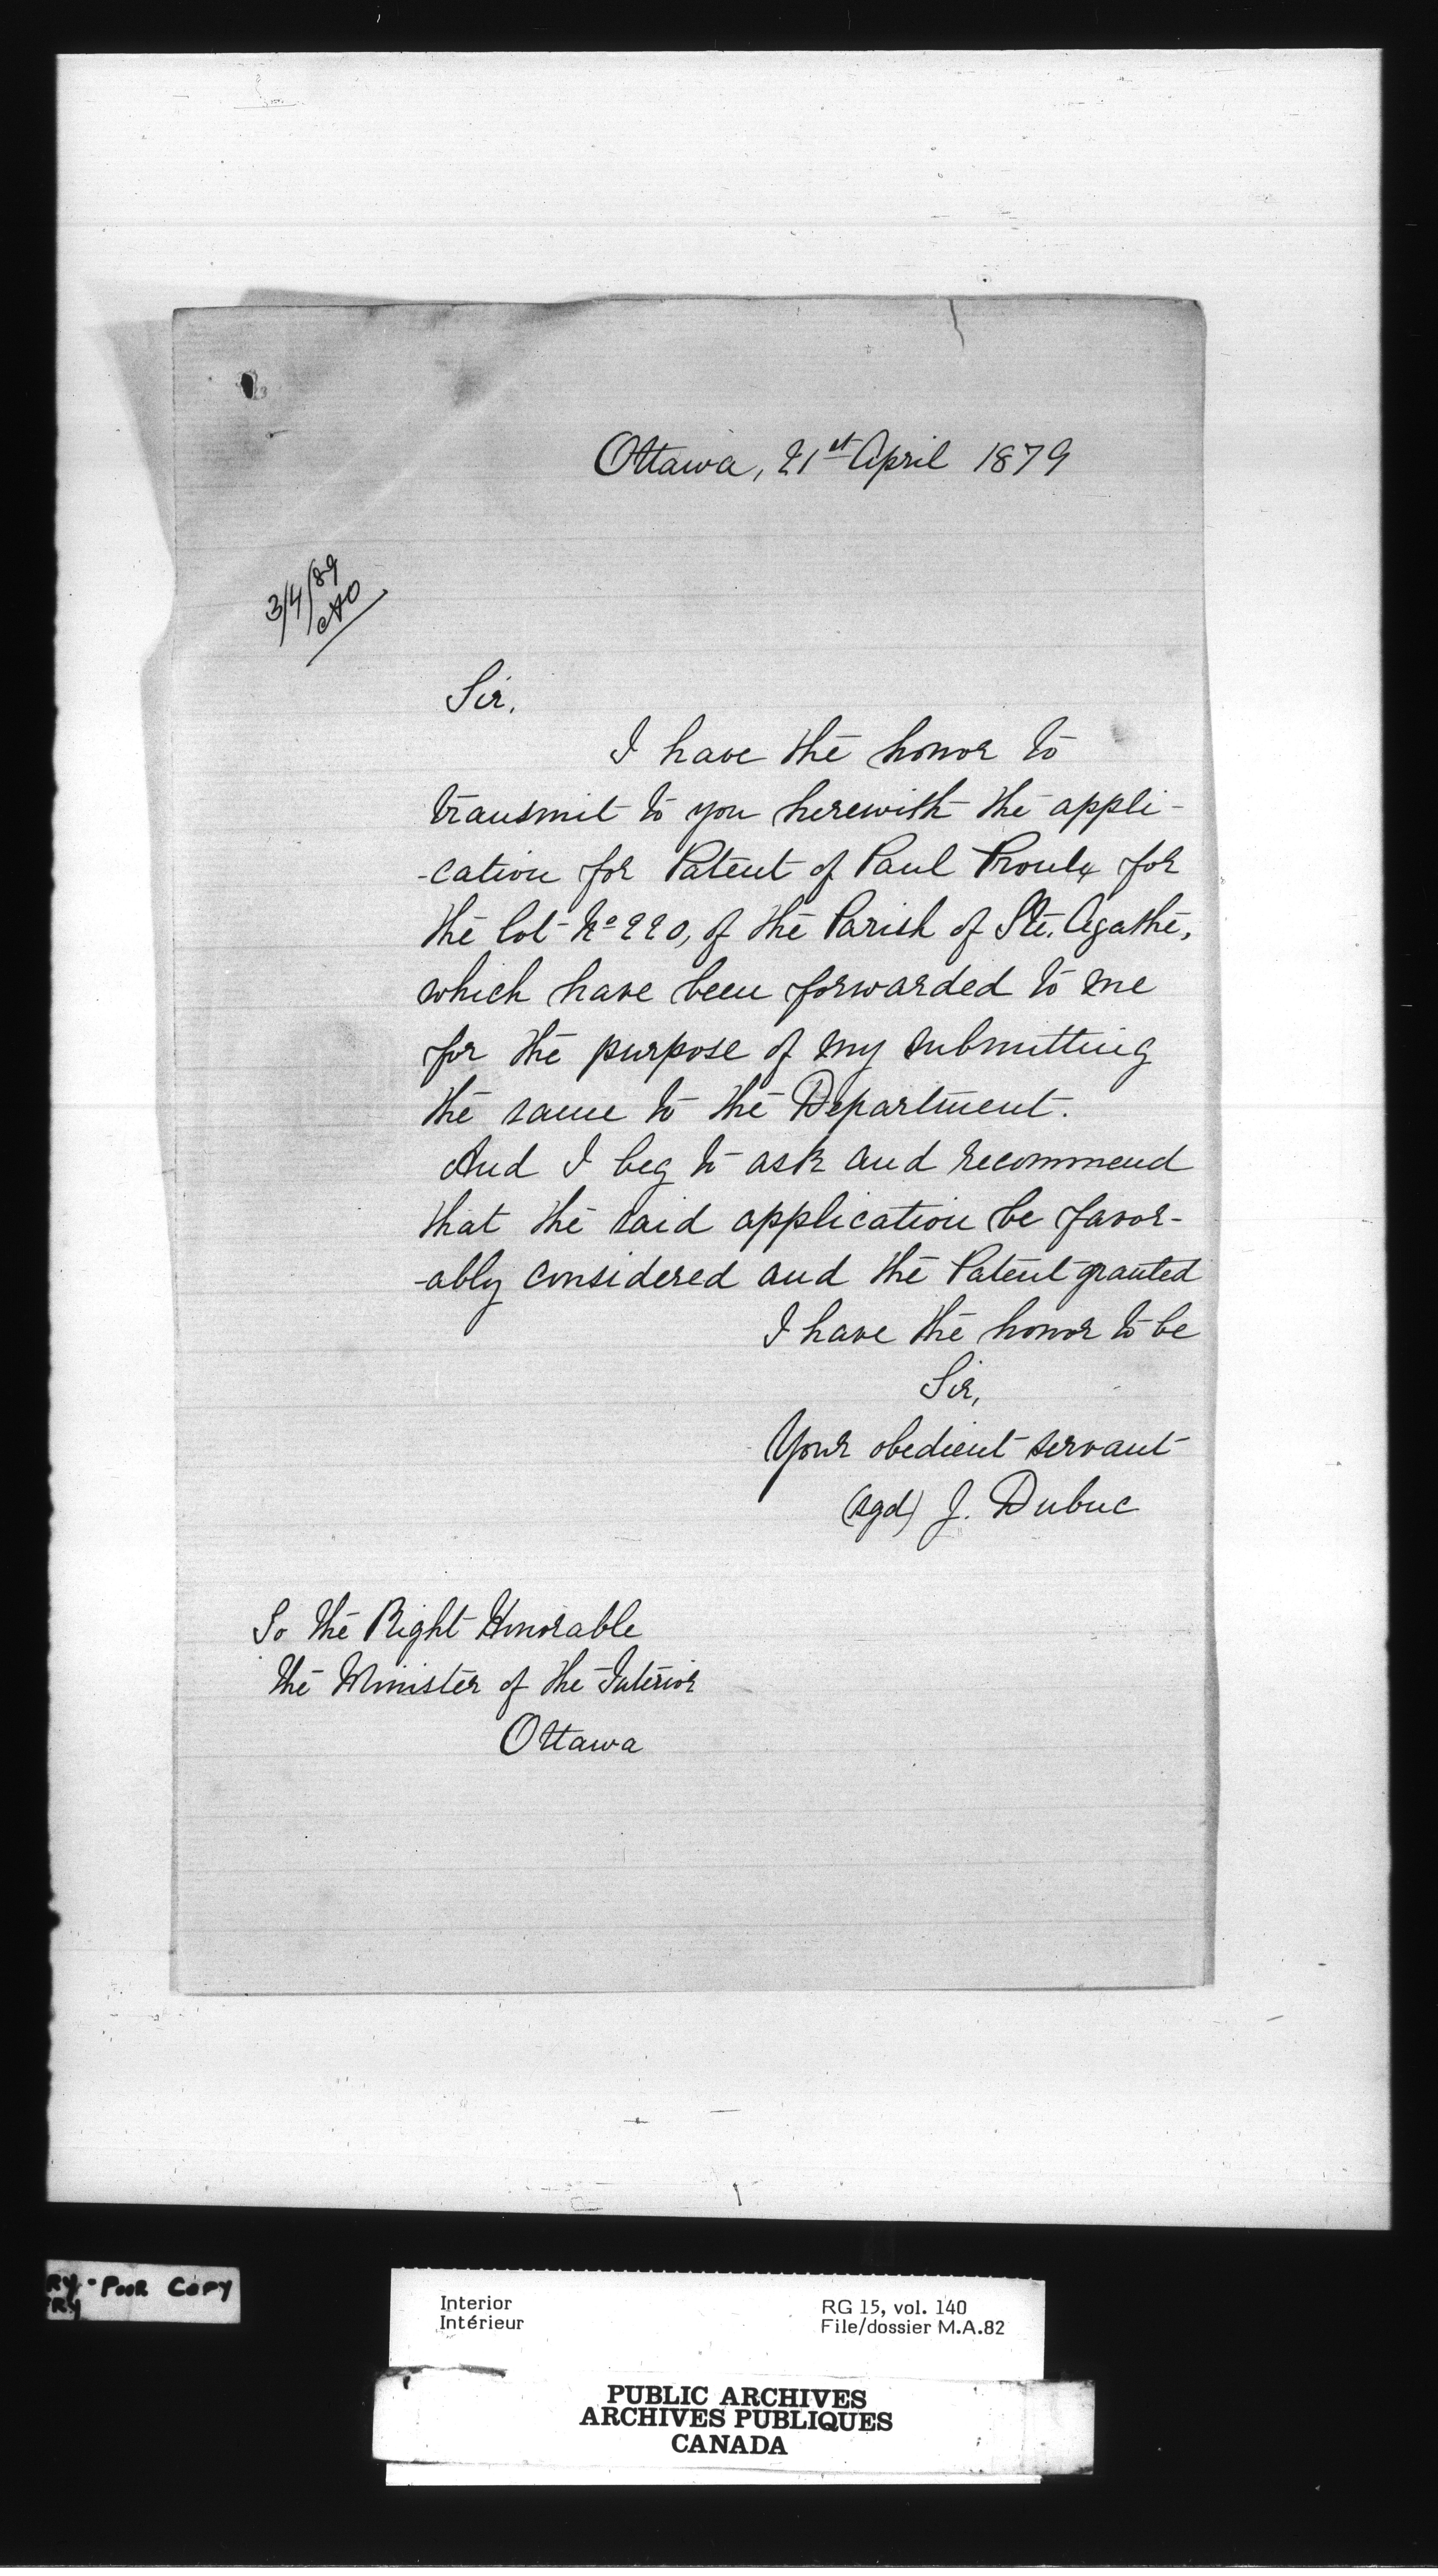 Ottawa, 21st April 1879
3/4/89
Sir,
I have the honor to
transmit to you herewith the appli-
-cation for Patent of Paul Proulx for
the lot No 220, of the Parish of Ste. Agathe,
which have been forwarded to me
for the purpose of my submitting
the same to the Department.
And I beg to ask and recommend
that the said application be favor-
-ably considered and the Patent granted
I have the honor to be
Sir,
Your obedient servant
(sgd) J. Dubuc
To the Right Honorable
the Minister of the Interior
Ottawa
RY - POOR COPY
RY
Interior
Intérieur
RG 15, vol. 140
File/dossier M.A.82
PUBLIC ARCHIVES
ARCHIVES PUBLIQUES
CANADA